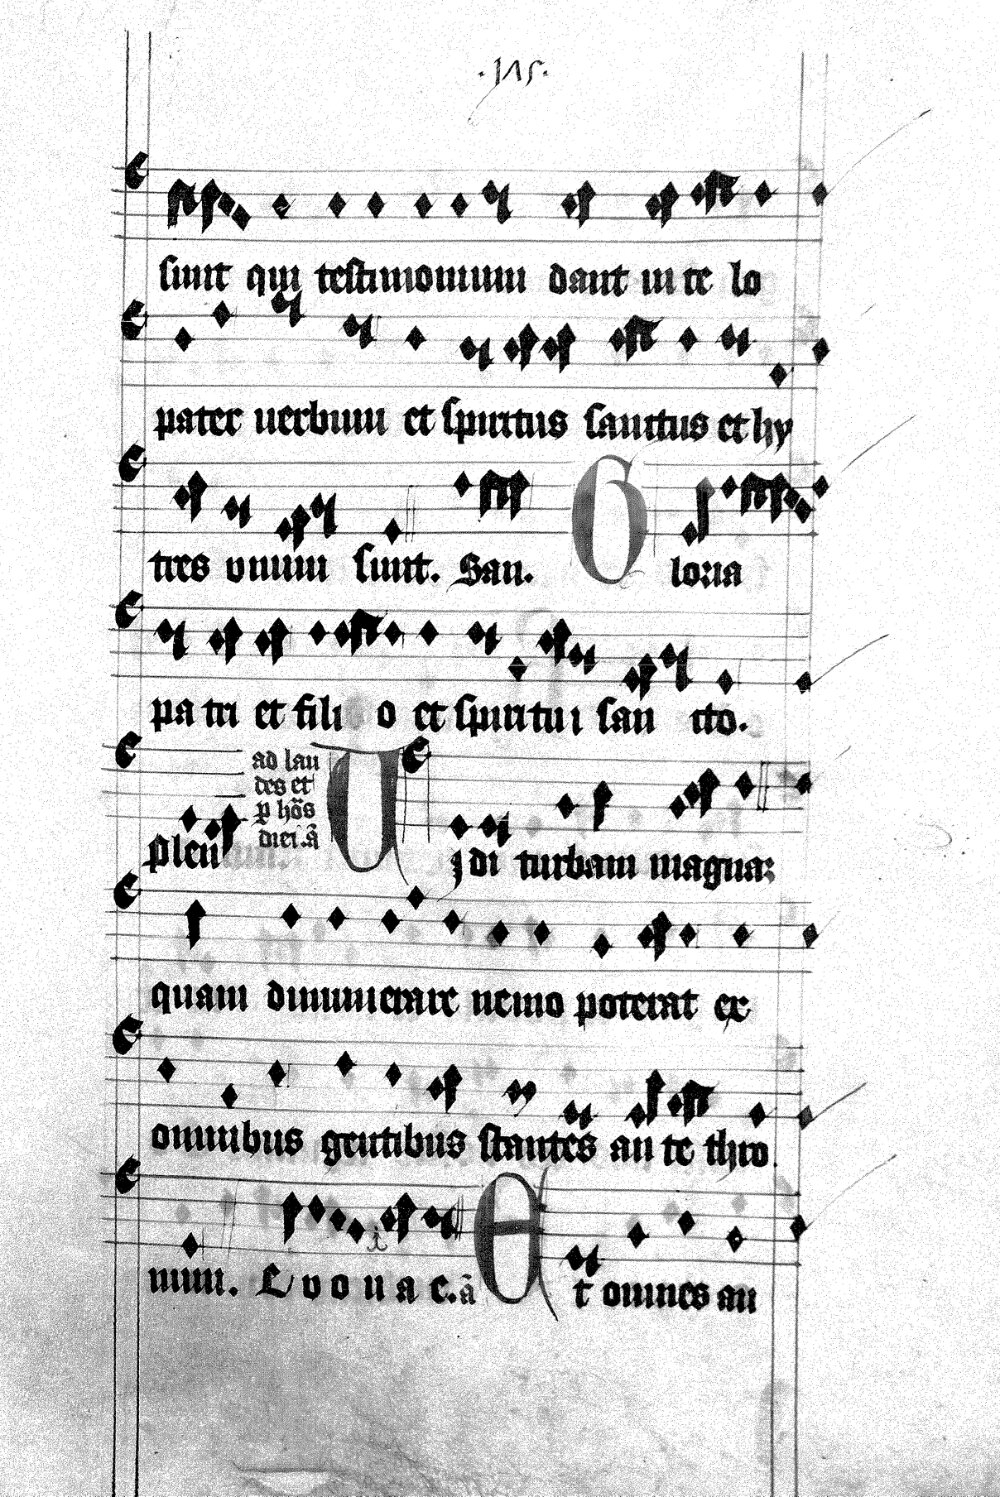 sunt qui testimonium dant in te lo
pater uerbum et spiritus sanctus et hy
tres vnum sunt. San. Gloria
pa tri et fili o et spiritu i san cto.
Pleni
ad lau
des et
p hõs
diei.ã
Uidi turbam magnam
quam dinumerare nemo poterat ex
omnibus gentibus stantes an te thro
num. E v o u a e. ã Et omnes an